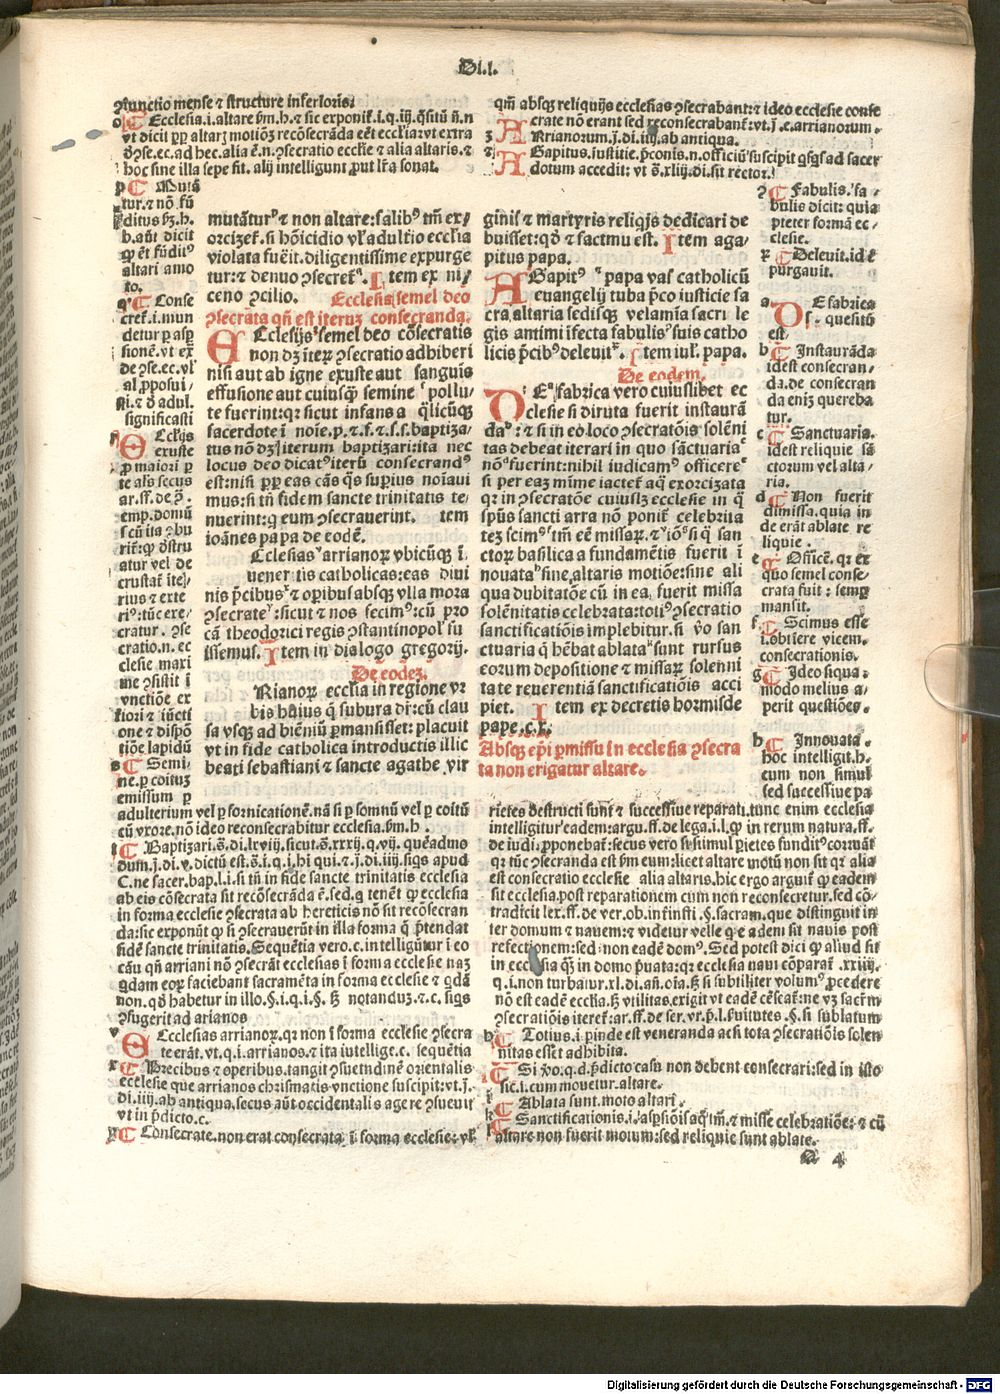 Di.I.
ꝯiunctio mense ⁊ structure inferioris.
Ecclesia.i.altare ẜm.h.⁊ sic exponit̃.i.q.iij.q̃sitũ ñ.n
vt dicit ꝓp̃ altarꝭ motiõꝫ recõsecrãda eẽt eccl̃ia:vt extra
ð ꝯse.ec.ad hec.alia ẽ.n.ꝯsecratio eccl̃ie ⁊ alia altaris.⁊
hoc sine illa sepe fit. alij intelligunt ꝓut lr̃a sonat.
Mutã
tur.⁊ nõ fũ
ditus ẜꝫ.h.
h.aũt dicit
ꝙ et fũdit⁹
altari amo
to.
Conse
cret̃.i.mun
detur ꝑ asp
sionẽ.vt ex
de ꝯse.ec.vl̃
al.ꝓposui
sti.⁊ ð adul.
significasti
Eccl̃ijs
exuste
ꝓ maiori ꝑ
te al̃s secus
ar.ff.de ꝯ.
emp.domũ
atur vel de
rius ⁊ exte
ri⁹:tũc exe
cratur. ꝯse
cratio.n. ec
clesie maxi
me ꝯsistit ĩ
vnctiõe ex
teriori ⁊ iũcti
one ⁊ dispõ
tiõe lapidũ
Semi
ne.ꝑ coituꝫ
emissum ꝑ
mutãtur ⁊ non altare:salib⁹ tm̃ ex
orcizet̃.si hõicidio vl̃ adulťio eccl̃ia
violata fuẽit.diligentissime expurge
tur:⁊ denuo ꝯsecret̃. Item ex ni
ceno ꝯcilio. Ecclesia semel deo
ꝯsecrata qñ est iteruꝫ consecranda.
Ecclesijs semel deo cõsecratis
non dꝫ iteꝝ ꝯsecratio adhiberi
nisi aut ab igne exuste aut sanguis
effusione aut cuiusꝙ̃ semine pollu
te fuerint:qꝛ sicut infans a q̃licũqꝫ
sacerdote ĩ noĩe.p.⁊.f.⁊.s.s.baptiza
tus nõ dꝫ iterum baptizari:ita nec
locus deo dicat⁹ iterũ consecrand⁹
est:nisi ꝓp̃ eas cãs q̃s supius noĩaui
mus:si tñ fidem sancte trinitatis te
nuerint:q̃ eum ꝯsecrauerint. tem
ioãnes papa de eodẽ.
Ecclesias arrianoꝝ vbicũqꝫ ĩ
uener tis catholicas:eas diui
nis p̃cibus ⁊ opibus absqꝫ vlla mora
ꝯsecrate:sicut ⁊ nos secim⁹:cũ pro
cã theodorici regis ꝯstantinopol̃ fu
issemus. Item in dialogo gregorij.
De eodeꝫ.
Rianoꝝ eccl̃ia in regione vꝛ
bis huius q̃ subura dr̃:cũ clau
sa vsqꝫ ad biẽniũ ꝑmansisset:placuit
vt in fide catholica introductis illic
beati sebastiani ⁊ sancte agathe vir
adulterium vel ꝑ fornicationẽ.nã si ꝑ somnũ vel ꝑ coitũ
cũ vxore.nõ ideo reconsecrabitur ecclesia.ẜm.h.
Baptizari.s̃.di.lxviij.sicut.s̃.xxxij.q.vij.queãdmo
dum.j.di.v.dictũ est.s̃.i.q.i.hi qui.⁊.j.di.iiij.sigs apud
C.ne sacer.bap.l.i.si tñ in fide sancte trinitatis ecclesia
ab eis cõsecrata sit recõsecrãda ẽ.sed.q tenẽt ꝙ ecclesia
in forma ecclesie ꝯsecrata ab hereticis nõ sit recõsecran
da:sic exponũt ꝙ si ꝯsecrauerũt in illa forma q̃ p̃tendat
fidẽ sancte trinitatis.Sequẽtia vero.c.intelligũtur ĩ eo
cãu qñ arriani nõ ꝯsecrãt ecclesias ĩ forma ecclesie naꝫ
gdam eoꝝ faciebant sacramẽta in forma ecclesie ⁊ gdã
non.qð habetur in illo.§.i.q.i.§. ẜꝫ notanduꝫ.⁊.c.sigs
ꝯfugerit ad arianos
Ecclesias arrianoꝝ.qꝛ non ĩ forma ecclesie ꝯsecra
te erãt.vt.q.i.arrianos.⁊ ita intellige.c. sequẽtia
Precibus ⁊ operibus.tangit ꝯsuetudinẽ orientalis
ecclesie que arrianos chrismatis vnctione suscipit:vt.j.
di.iiij.ab antiqua.secus aũt occidentalis agere ꝯsueuit
vt in p̃dicto.c.
Consecrate.non erat consecrata ĩ forma ecclesie:vl̃
qm̃ absqꝫ reliquijs ecclesias ꝯsecrabant:⁊ ideo ecclesie conse
crate nõ erant sed reconsecrabant̃:vt.j.e.arrianorum.
Arianorum.j.di.iiij.ab antiqua.
Agapitus.iustitie.p̃conis.n.officiũ suscipit gsqs ad sacer
dotum accedit: vt s̃.xliij.di.sit rector.
ginis ⁊ martyris reliqijs dedicari de
buisset:qð ⁊ factmu est. Item aga
pitus papa.
Agapit⁹ papa vas catholicũ
euangelij tuba p̃co iusticie sa
cra altaria sedisqꝫ velamĩa sacri le
gis antimi ĩfecta fabulis suis catho
licis p̃cib⁹ deleuit. Item iul̃. papa.
De eodem.
DE fabrica vero cuiuslibet ec
clesie si diruta fuerit instaurã
da:⁊ si in eo loco ꝯsecratõis solẽni
tas debeat iterari in quo sãctuaria
nõ fuerint:nihil iudicam⁹ officere
si per eaꝫ mĩme iactet̃ aq̃ exorcizata
qꝛ in ꝯsecratõe cuiuslꝫ ecclesie in q̃
spũs sancti arra nõ ponit̃ celebrita
teꝫ scim⁹ tm̃ eẽ missaꝝ.⁊ iõ si q̃ san
ctoꝝ basilica a fundamẽtis fuerit ĩ
nouata sine altaris motiõe:sine ali
qua dubitatõe cũ in ea fuerit missa
solẽnitatis celebrata:toti⁹ ꝯsecratio
sanctificatiõis implebitur.si v̉o san
ctuaria q̃ hẽbat ablata sunt rursus
eorum depositione ⁊ missaꝝ solenni
tate reuerentiã sanctificatiõis acci
piet. Item ex decretis hormisde
pape.c.x.
Absqꝫ ep̃i ꝑmissu in ecclesia ꝯsecra
ta non erigatur altare.
Fabulis. fa
bulis dicit: quia
preter formã ec
clesie.
Deleuit.id ẽ
purgauit.
DE fabrica
s. quesitũ
est.
Instaurãda
idest consecran
da.de consecran
da eniꝫ quereba
tur.
Sanctuaria.
idest reliquie sã
ctorum vel alta
ria.
Non fuerit
dimissa.quia in
de erãt ablate re
liquie.
Officẽ.qꝛ ex
quo semel conse
crata fuit: semp
mansit.
Scimus esse
i.obtinere vicem.
consecrationis.
Ideo si qua:
modo melius a
perit questiões.
Innouata.
hoc intelligit.h.
cum non simul
sed successiue pa
rietes destructi sunt ⁊ successiue reparati.tunc enim ecclesia
intelligitur eadem:argu.ff.de lega.i.l.ꝙ in rerum natura.ff.
de iudi.ꝓponebat̃:secus vero si simul ꝑietes fundit⁹ corruãt
qꝛ tũc ꝯsecranda est ẜm eum:licet altare motũ non sit qꝛ alia
est consecratio ecclesie alia altaris.hic ergo arguit̃ ꝙ eadem
sit ecclesia.post reparationem cum non reconsecretur.sed cõ
tradicit lex.ff.de ver.ob.in insti.§.sacram.que distinguit in
ter domum ⁊ nauem:⁊ videtur velle q̃ eadem sit nauis post
refectionem:sed non eadẽ dom⁹.Sed potest dici ꝙ aliud sit
in ecclesia q̃ꝫ in domo p̃uata:qꝛ ecclesia naui cõparat̃.xxiiij.
q.i.non turbatur.xl.di.añ.oĩa.ẜꝫ si subtiliter volum⁹ ꝓcedere
nõ est eadẽ eccl̃ia.ẜꝫ vtilitas exigit vt eadẽ cẽseat̃:ne vꝫ sacr̃m
ꝯsecratiõis iteret̃:ar.ff.de ser.vr.p̃.l.seruitutes.§.si sublatum
Totius.i.ꝓinde est veneranda ac si tota ꝯsecratiõis solen
nitas esset adhibita.
Si v̉o.q.d.p̃dicto casu non debent consecrari:sed in isto
sic.i.cum mouetur altare.
Ablata sunt.moto altari.
Sanctificationis.i.aspsiõis aq̃ tm̃.⁊ misse celebratiõe:⁊ cũ
altare non fuerit motum:sed reliquie sunt ablate.
A 4
Digitalisierung gefördert durch die Deutsche Forschungsgemeinschaft - DFG